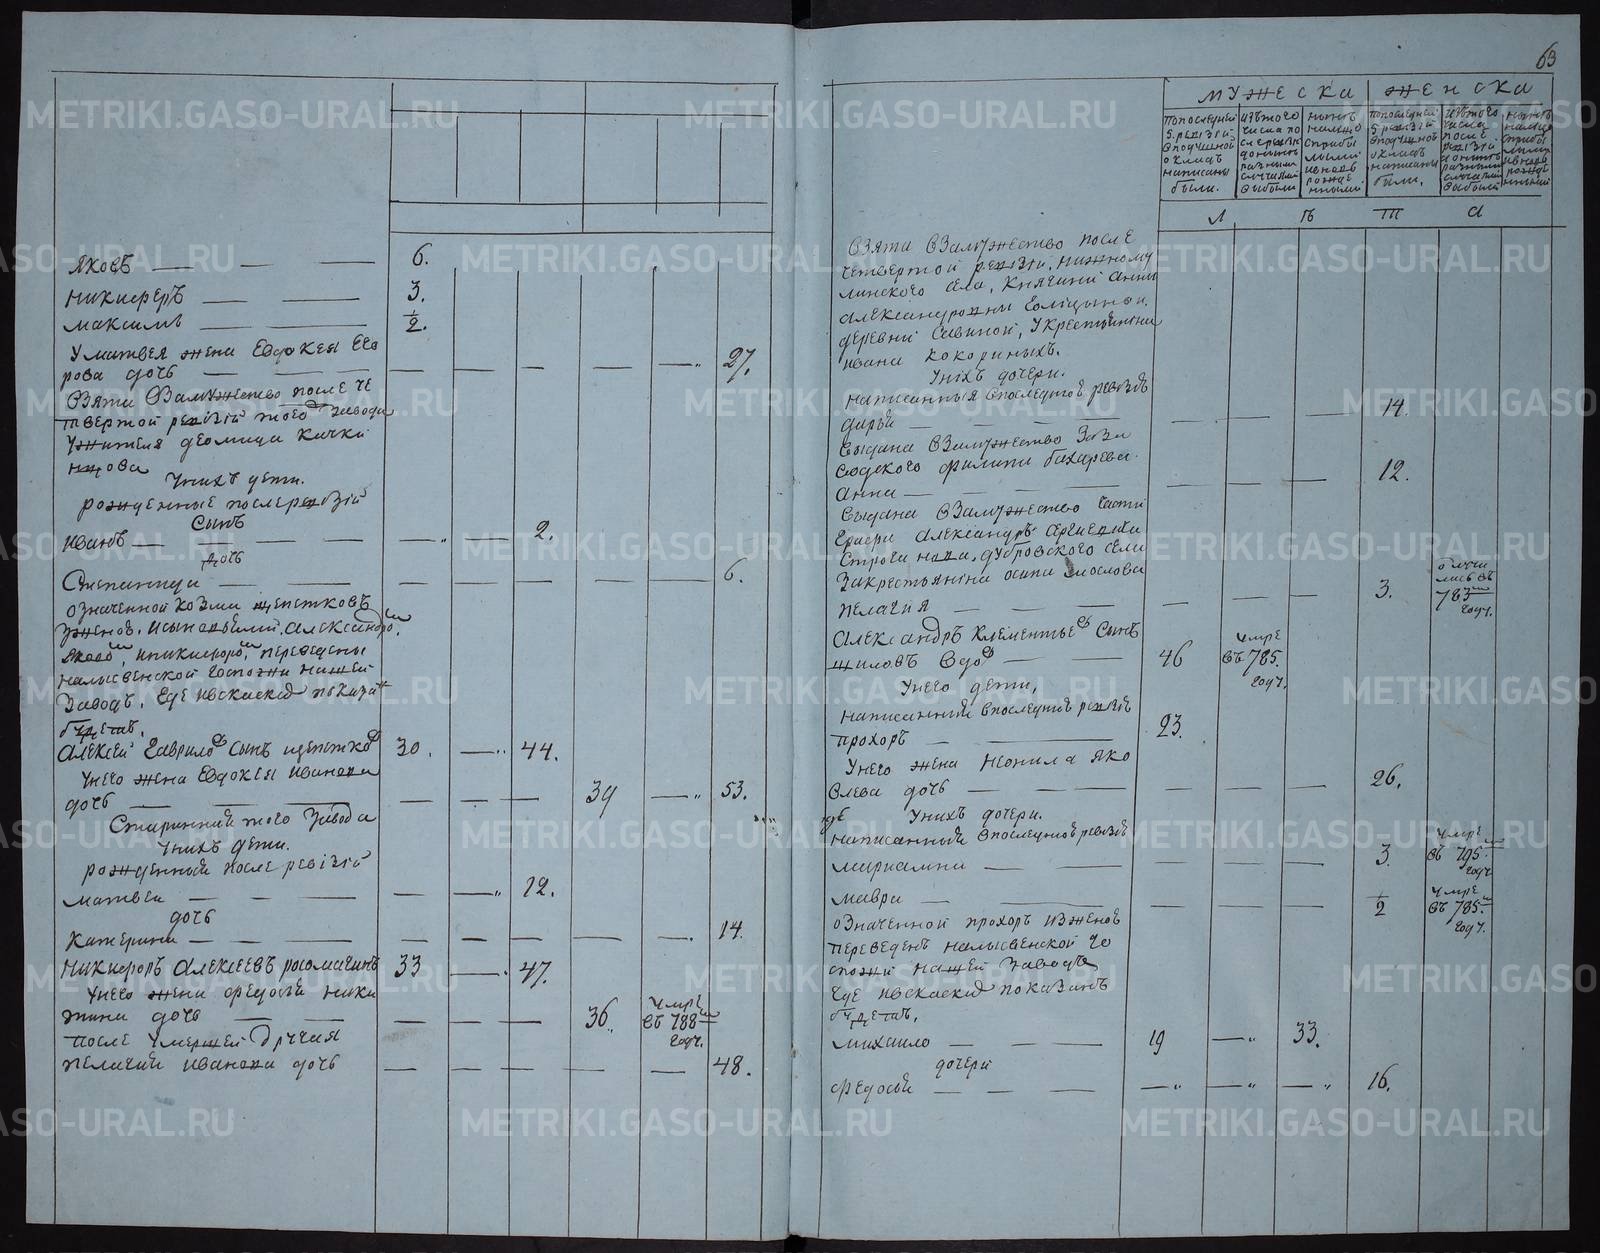 Яковъ — — — 6.
Никифоръ — — 3.
Максимъ — — 1/2.
У матвея жена Евдокея Его
рова дочь — — — — — — — 27.
Взята Взамужество после че
твертой ревизiй того завода
Ужителя
Унихъ дети.
рожденные после ревизiй
Сынъ
Иванъ — — — — 2.
дочь
Степанида — — — — — — — 6.
означенной козма щепетковъ
Зженою, исыновьями, Александро,
Яково, никифоро, переведены
налысвенской госпожи нашей
Заводъ, где повскаскъ показан
будетъ.
Алексей Гаврило Сынъ щепетко 30. — 44.
Унего жена Евдокея Иванова
дочь — — — — — — 39 — 53.
Старинный того Завода
Унихъ дети.
рожденный после ревiзiй
матвей — — — — — 12.
дочь
Катерина — — — — — — — — 14.
Никифоръ Алексеевъ росомагинъ 33 — 47.
Унего жена федосья ники
тина дочь — — — — — 36. умре въ 788м году.
После умершей другая
Пелагия Иванова дочь — — — — — — 48.
63
МУЖЕСКА ЖЕНСКА
Попоследней 5 ревизiй вподушной окладъ написаны были.
изътого числа после ревизiй до ныне разными случаями выбыли
ныне налицо сприбылыми ивновь рожденными
Попоследней 5 ревизiй вподушной окладъ написаны были.
изътого числа после ревизiй до ныне разными случаями выбыли
ныне налицо сприбылыми ивновь рожденными
Л Ѣ Т А
Взята Взамужество после
Четвертой ревизiи,
села, Княгини Анны
Александровны Голицыной,
деревни Савиной, Укрестьянина
Ивана кокориныхъ.
Унихъ дочери.
Написанныя впоследней ревизiй
дарья — — — — — 14.
Выдана Взамужество Заза
водского филипа бахарева.
Анна — — — — — — 12.
Выдана Взамужество Части
Александръ Сергиевича
Строганова, дубровского села
Закрестьянина осипа маслова
Пелагия — — — — — — 3. въ 783м году.
Александръ Клементье Сынъ
шиловъ вдо — — 46 умре въ 785. году.
Унего дети,
Написанный впоследней ревизiй
Прохоръ — — 23.
Унего жена Неонила Яко
влева дочь — — — — — — 26.
Унихъ дочери.
Написанный впоследней ревизiй
мариамна — — — — — 3. умре въ 795м году
мавра — — — — — 1/2 умре въ 785м году.
означенной прохоръ изженою
Переведенъ налысвенской го
спожи нашей Заводъ
где повскаскъ показанъ
будетъ.
михаило — — — 19 — 33.
дочери
федосья — — — — — — 16.